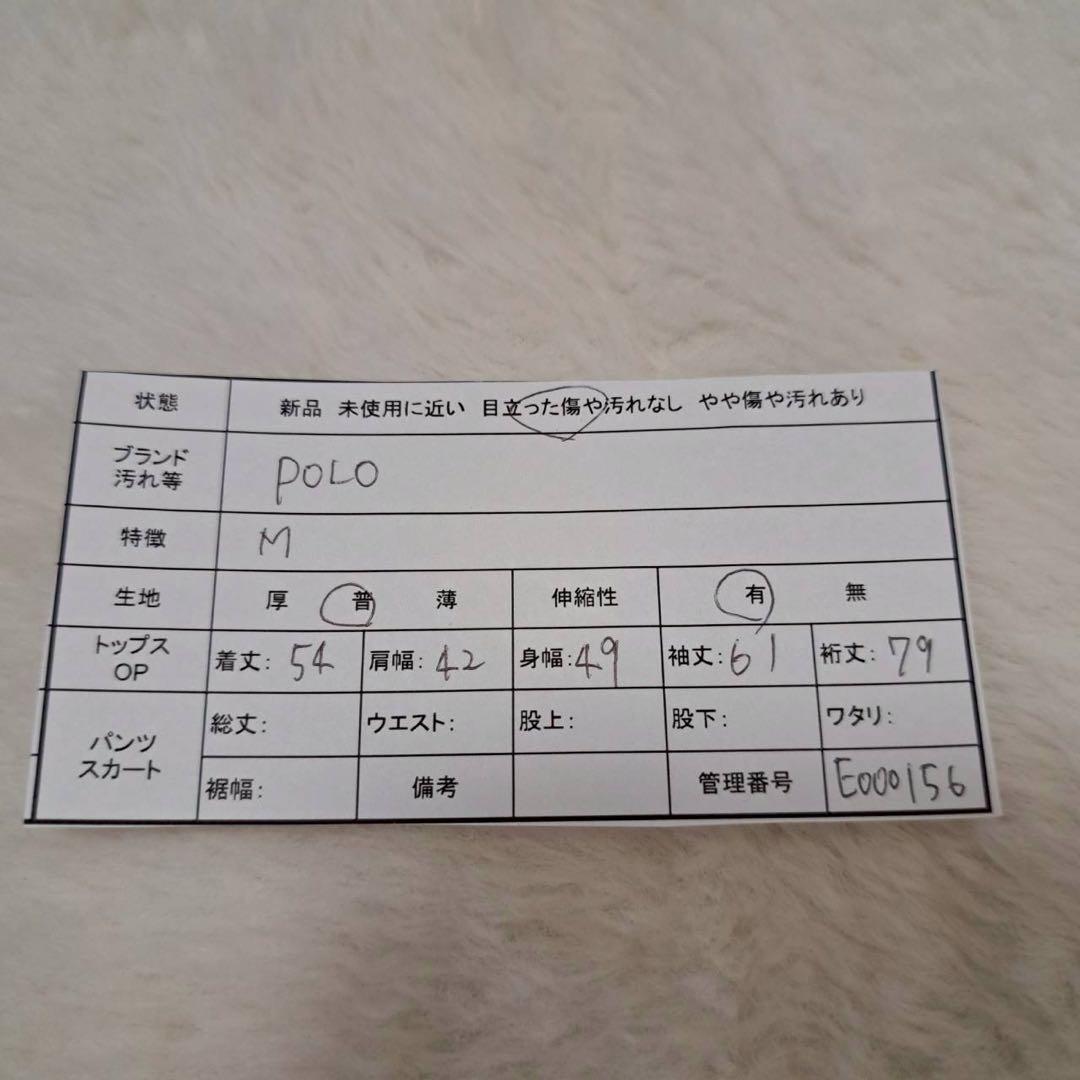 状態 新品 未使用に近い 目立った傷や汚れなし やや傷や汚れあり
ブランド
汚れ等 POLO
特徴 M
生地 厚 普 薄 伸縮性 有 無
トップス
OP 着丈: 54 肩幅: 42 身幅: 49 袖丈: 61 裄丈: 79
パンツ
スカート 総丈: ウエスト: 股上: 股下: ワタリ:
裾幅: 備考 管理番号 E000156